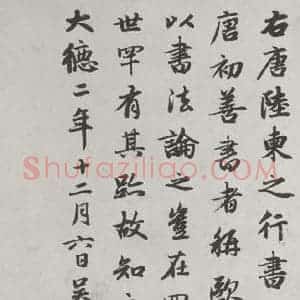 右唐陸柬之行書
唐初善書者稱歐
以書法論之豈在四
世罕有其跡故知
大德二年十二月六日吴
Shufaziliao.com